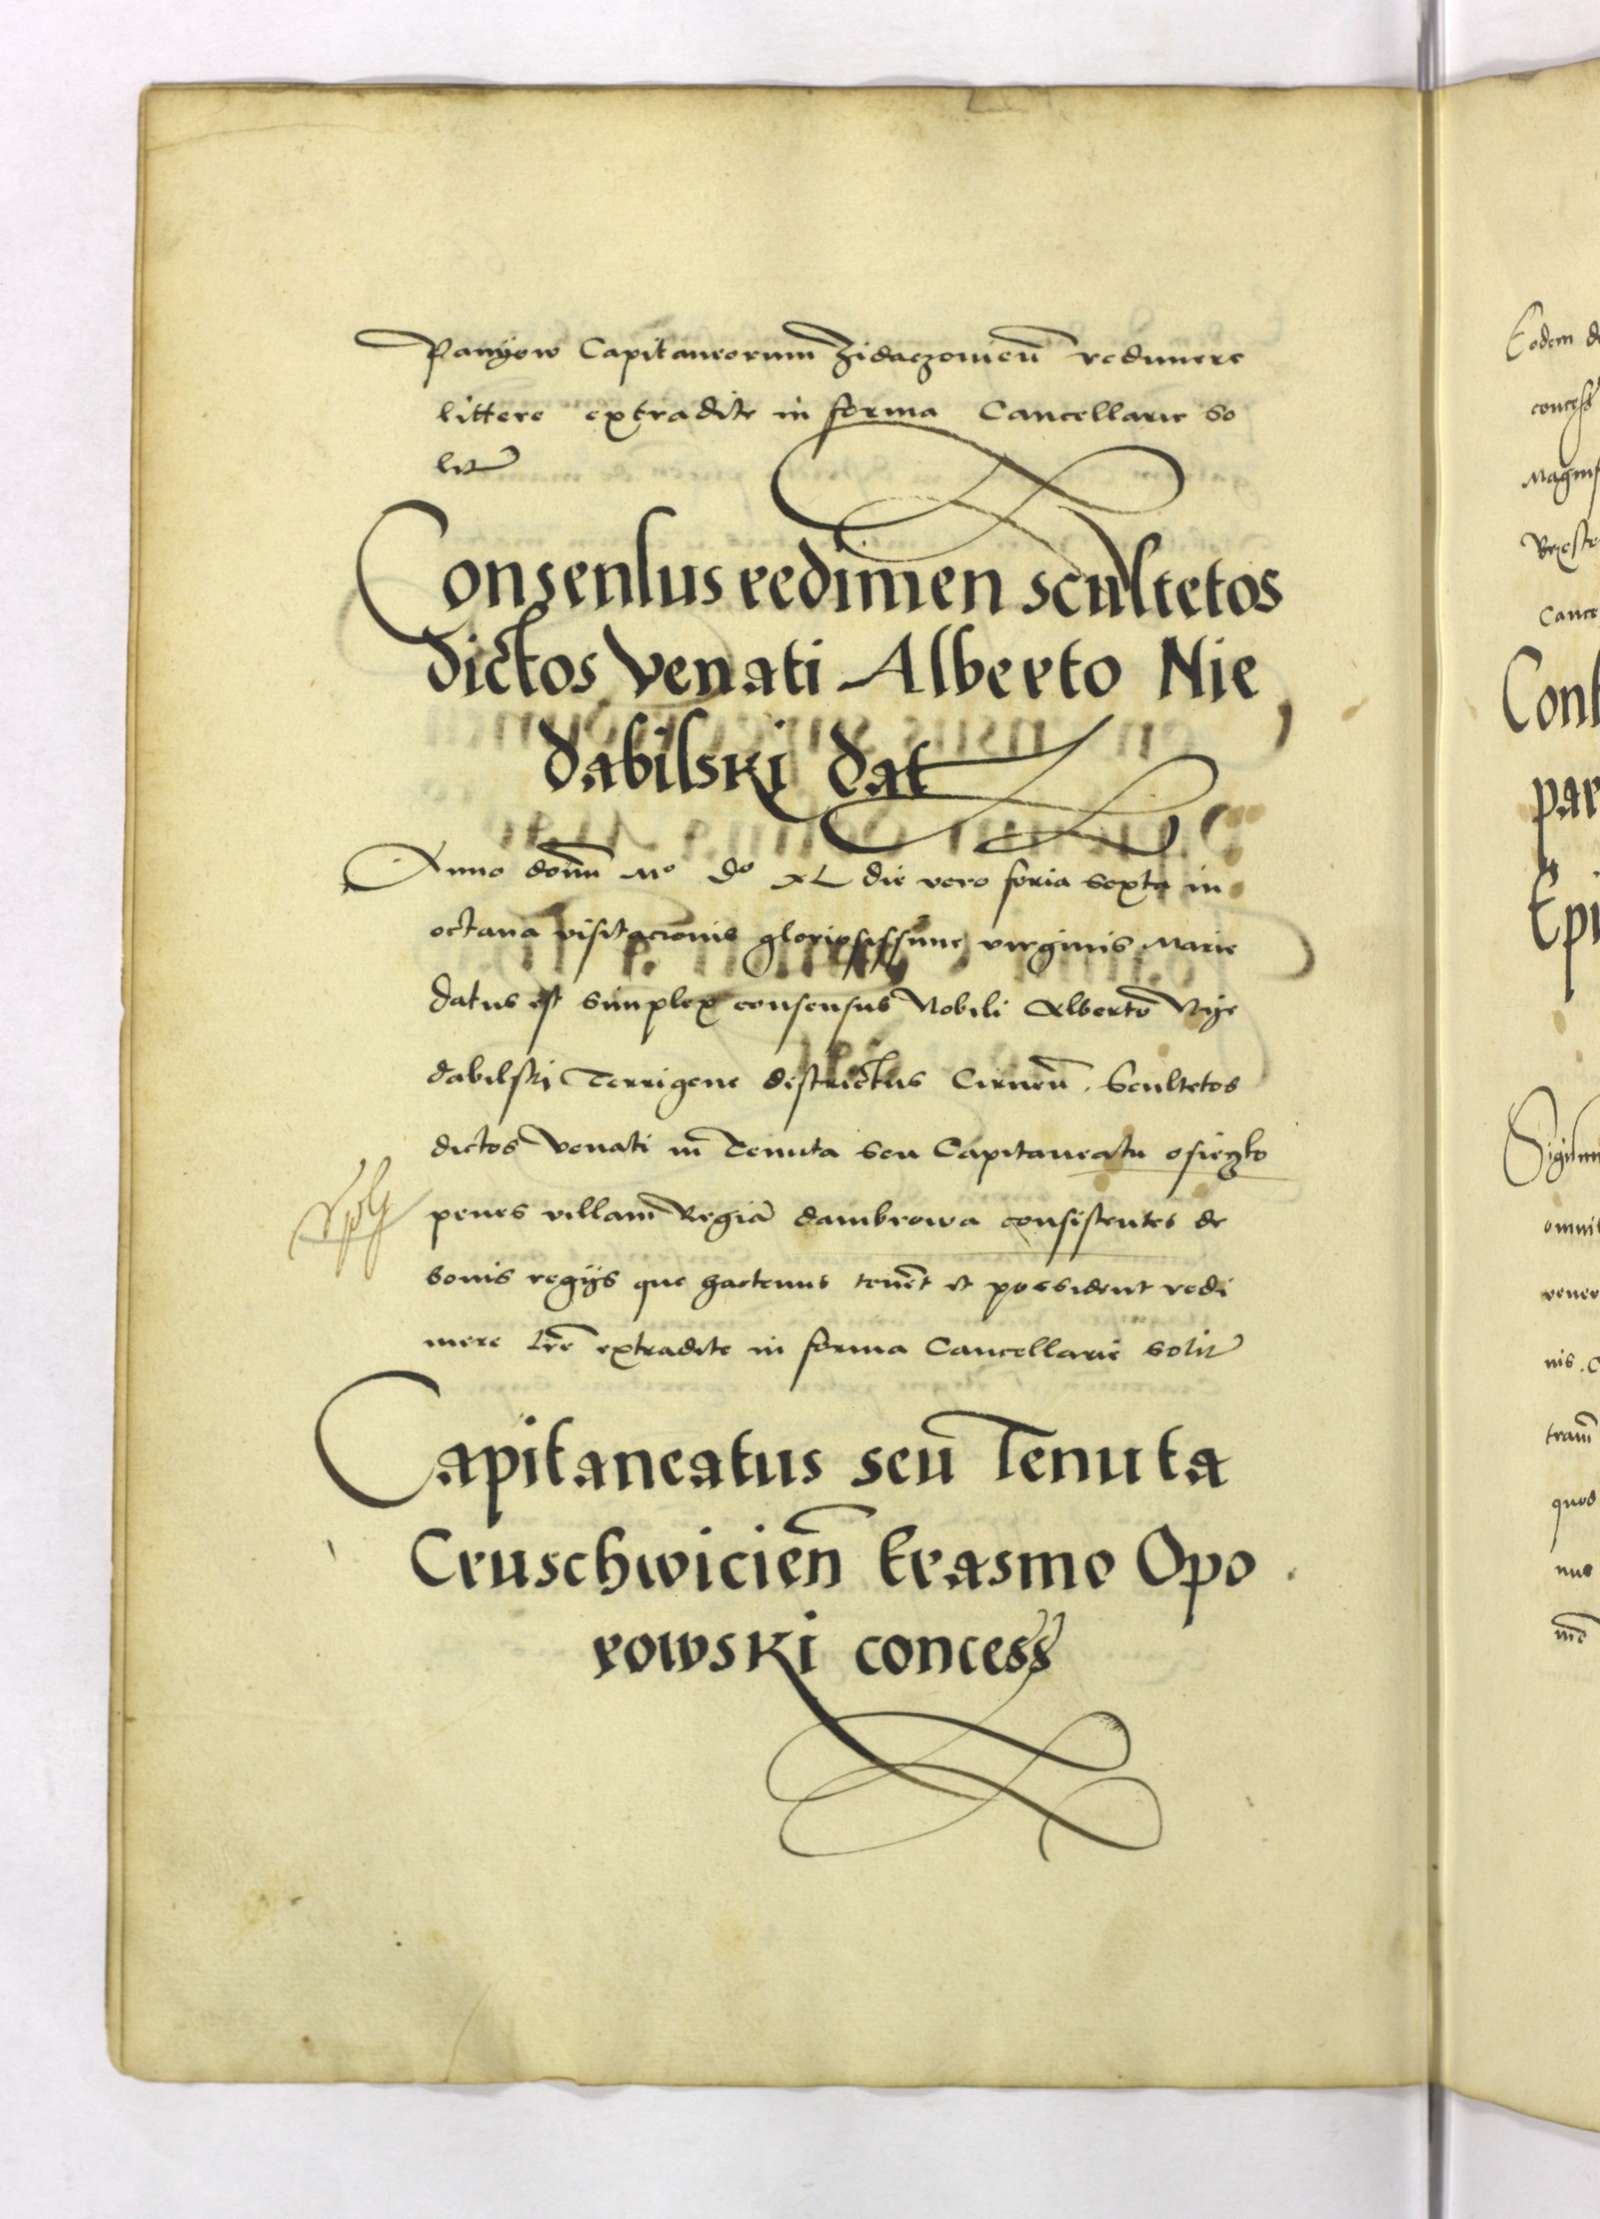 Panyow Capitaneorum Zidaczowien̄ redimere
littere extradite in forma Cancellarie so
lit
Consensus redimen scultetos
dictos Venati Alberto Nie
dabilski dat
Anno domi M° d° XL die vero feria sexta in
octava visitacionis gloriosissime virginis Marie
datus est simplex consensus Nobili Alberto Nye
dabilskj Terrigene districtus Cirnen̄ . Scultetos
dictos Venati in Tenuta seu Capitaneatu osieyko
penes villam Regiā dambrowa consistentes de
bonis regijs que hactenus tenēt et possident redi
mere lrē extradite in forma Cancellarie solit
Capitaneatus seu Tenuta
Cruschwicien̄ Erasmo Opo
rowski concess
Eodem
concess
Cance
Conf
par
Epi
omni
vener
nis .
tram̄
quod